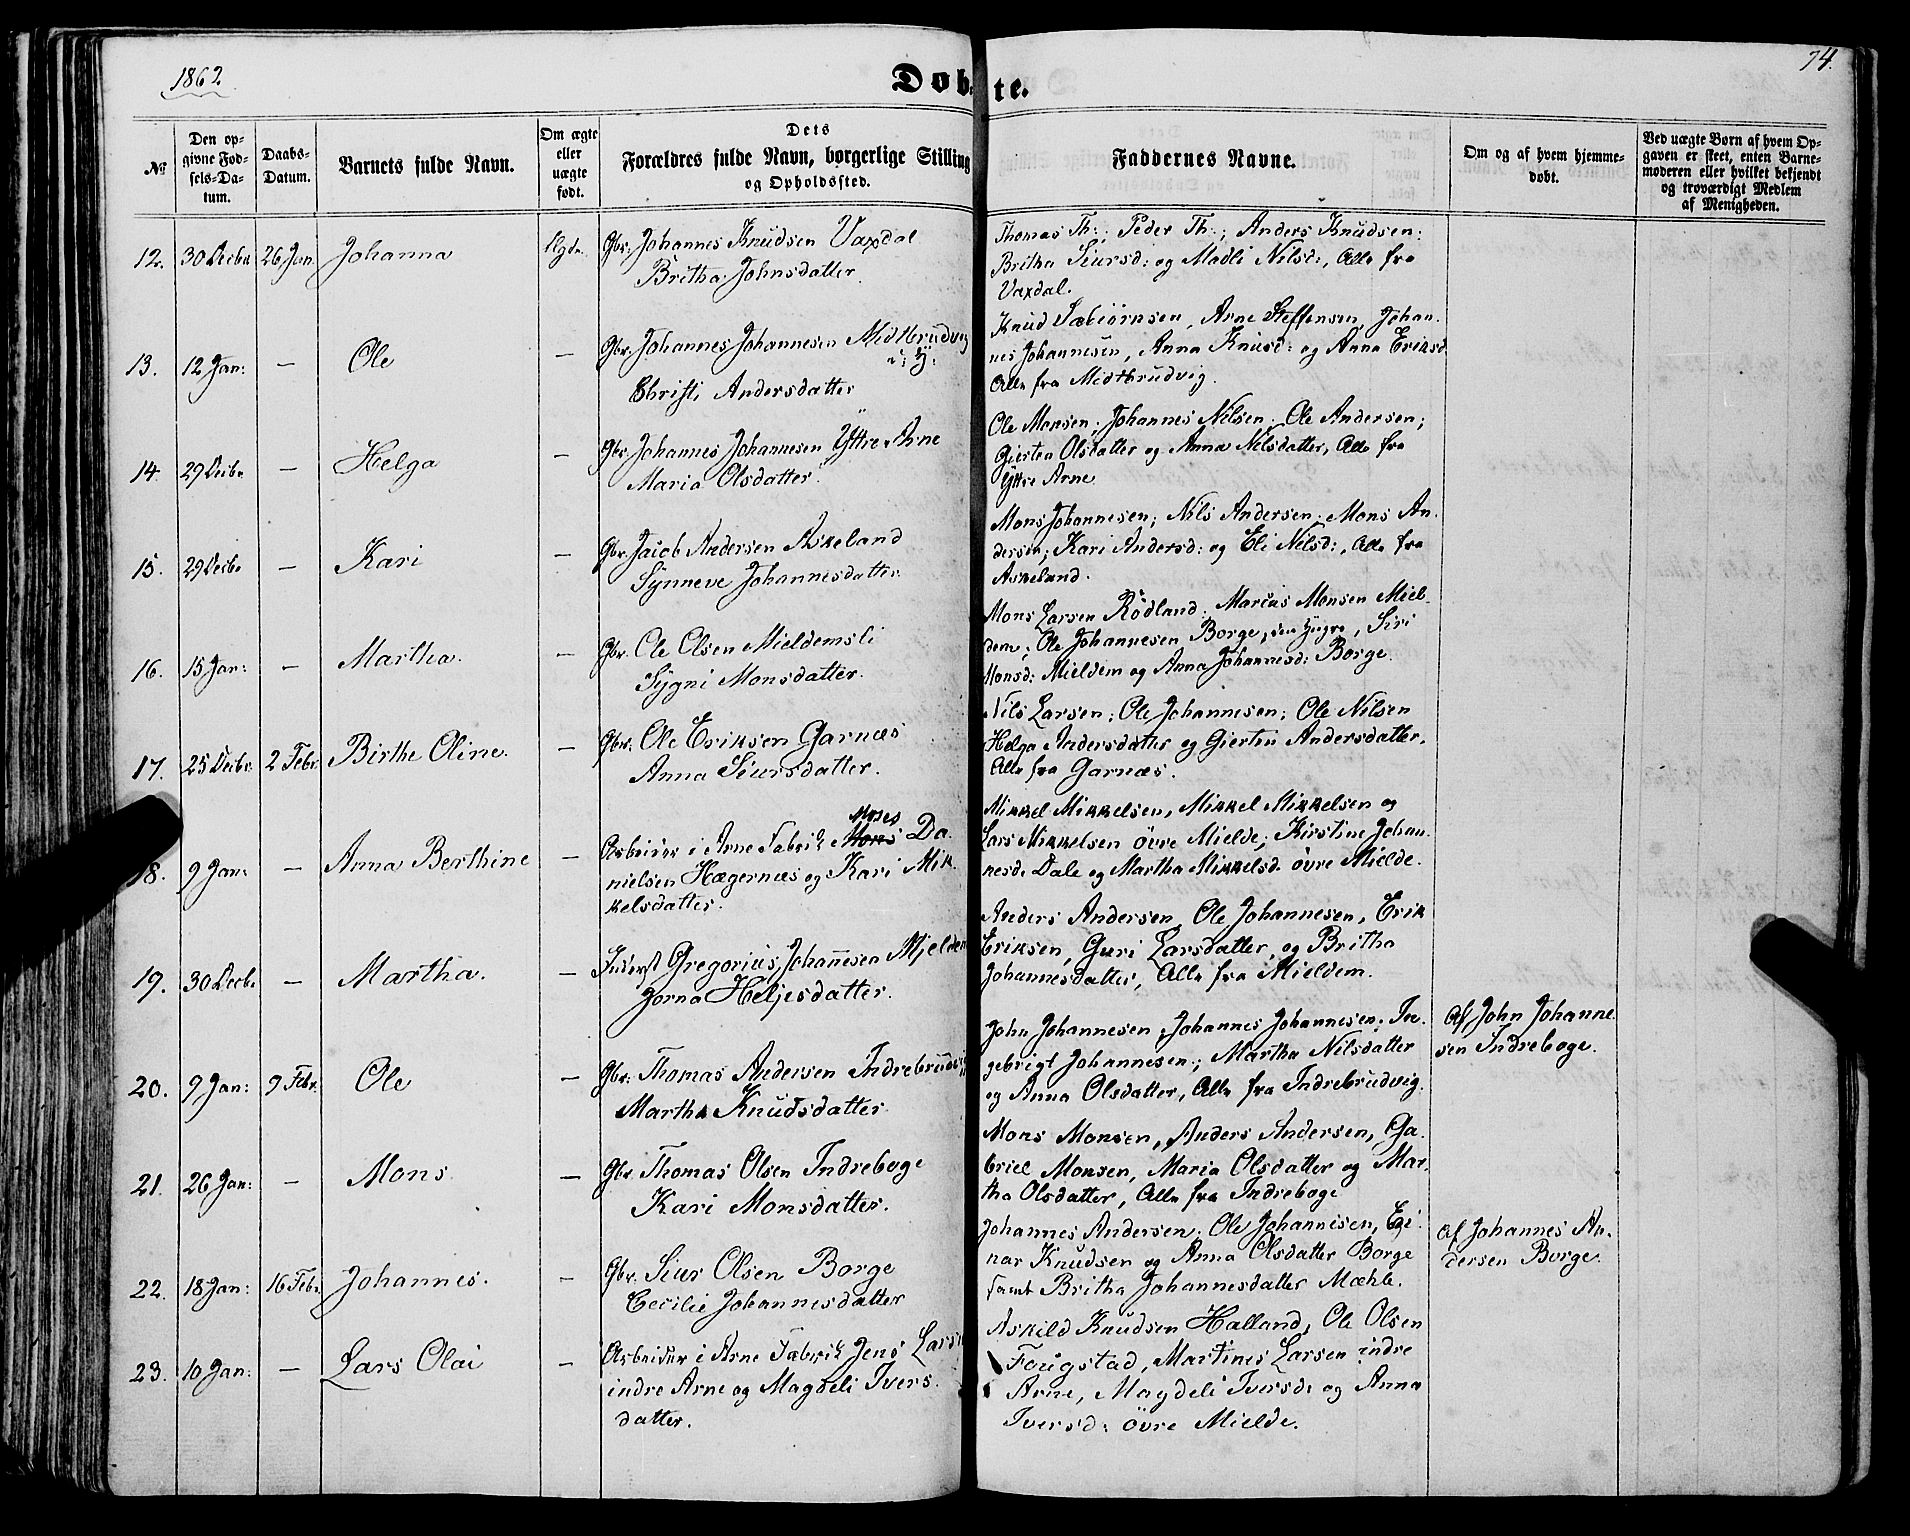 1862
74.
Døbte.
No
Den opgivne Fødsels-Datum.
Daabs-Datum.
Barnets fulde Navn.
Om ægte eller uægte født.
Dets Forældres fulde Navn, borgerlige Stilling og Opholdssted.
Faddernes Navne.
Om og af hvem hjemmedøbt.
Ved uægte Børn af hvem Opgaven er skeet, enten Barnemoderen eller hvilket bekjendt og troværdigt Medlem af Menigheden.
12. 30 Decbr 26 Jan. Johanna Ægte. Gbr. Johannes Knudsen Vaxdal
Britha Johnsdatter.
Thomas Th:; Peder Th:; Anders Knudsen:
Britha Siursd: og Madli Nilsd:, Alle fra
Vaxdal.
13. 12 Jan: — Ole — Gbr. Johannes Johannesen Midtbrudvig
Christi Andersdatter
Knud Sæbiörnsen, Arne Steffensen, Johan-
nes Johannesen, Anna Knusd: og Anna Eriksd
Alle fra Midtbrudvig.
14. 29 Decbr — Helga — Gbr. Johannes Johannesen Yttre Arne
Maria Olsdatter.
Ole Monsen; Johannes Nilsen; Ole Andersen;
Giertea Olsdatter og Anna Nilsdatter, Alle fra
Yttre Arne.
15. 29 Decbr — Kari — Gbr. Jacob Andersen Askeland
Synneve Johannesdatter.
Mons Johannesen; Nils Andersen; Mons An-
dersen; Kari Andersd: og Eli Nilsd:, Alle fra
Askeland.
16. 15 Jan: — Martha. — Gbr. Ole Olsen Mieldemsli
Sygni Monsdatter.
Mons Larsen Rödland; Marius Monsen Miel-
dem; Ole Johannesen Borge, den Yngre, Siri
Monsd: Mieldem og Anna Johannesd: Borge.
17. 25 Decbr 2 Febr. Birthe Oline. — Gbr. Ole Eriksen Garnæs
Anna Siursdatter.
Nils Larsen; Ole Johannesen; Ole Nilsen
Helga Andersdatter og Giertin Andersdatter,
Alle fra Garnæs.
18. 9 Jan: — Anna Berthine — Arbeider i Arne Fabrik Moses Da-
nielsen Hægernæs og Kari Mik-
kelsdatter.
Mikkel Mikkelsen, Mikkel Mikkelsen og
Lars Mikkelsen övre Mielde; Kirstine Johan-
nesd: Dale og Martha Mikkelsd. övre Mielde.
19. 30 Decbr — Martha. — Inderst Gregorius Johannesen Mjeldem
Jorna Heljesdatter.
Anders Andersen, Ole Johannesen, Erik
Eriksen, Guri Larsdatter, og Britha
Johannesdatter, Alle fra Mieldem.
20. 9 Jan: 9 Febr. Ole — Gbr: Thomas Andersen Indrebrudvig
Martha Knudsdatter
John Johannesen, Johannes Johannesen; In-
gebrigt Johannesen; Martha Nilsdatter
og Anna Olsdatter, Alle fra Indrebrudvig.
Af John Johanne-
sen Indreboge.
21. 26 Jan: — Mons. — Gbr. Thomas Olsen Indreboge
Kari Monsdatter.
Mons Monsen, Anders Andersen, Ga-
briel Monsen, Maria Olsdatter og Mar-
tha Olsdatter, Alle fra Indreboge
22. 18 Jan: 16 Febr. Johannes. — Gbr. Siur Olsen Borge
Cecilie Johannesdatter
Johannes Andersen; Ole Johannesen, Ei-
nar Knudsen og Anna Olsdatter Borge
samt Britha Johannesdatter Mæhle.
Af Johannes An-
dersen Borge.
23. 10 Jan: — Lars Olai — Arbeider i Arne Fabrik Jens Larsen
indre Arne og Magdeli Ivers-
datter.
Askild Knudsen Halland, Ole Olsen
Fougstad, Martines Larsen indre
Arne, Magdeli Iversd: og Anna
Iversd: övre Mielde.